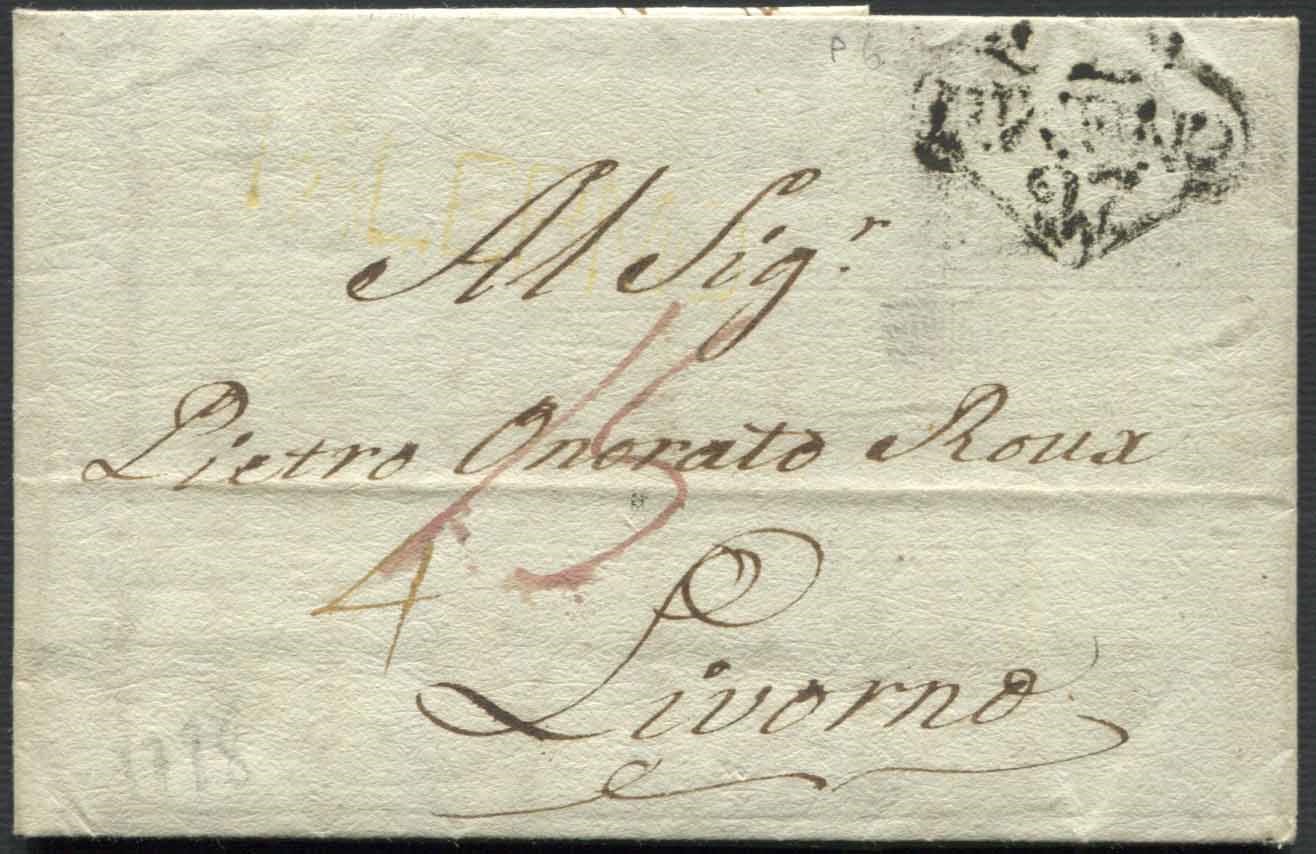 PALERMO
Al Sigr.
Pietro Onorato Roux
4
Livorno